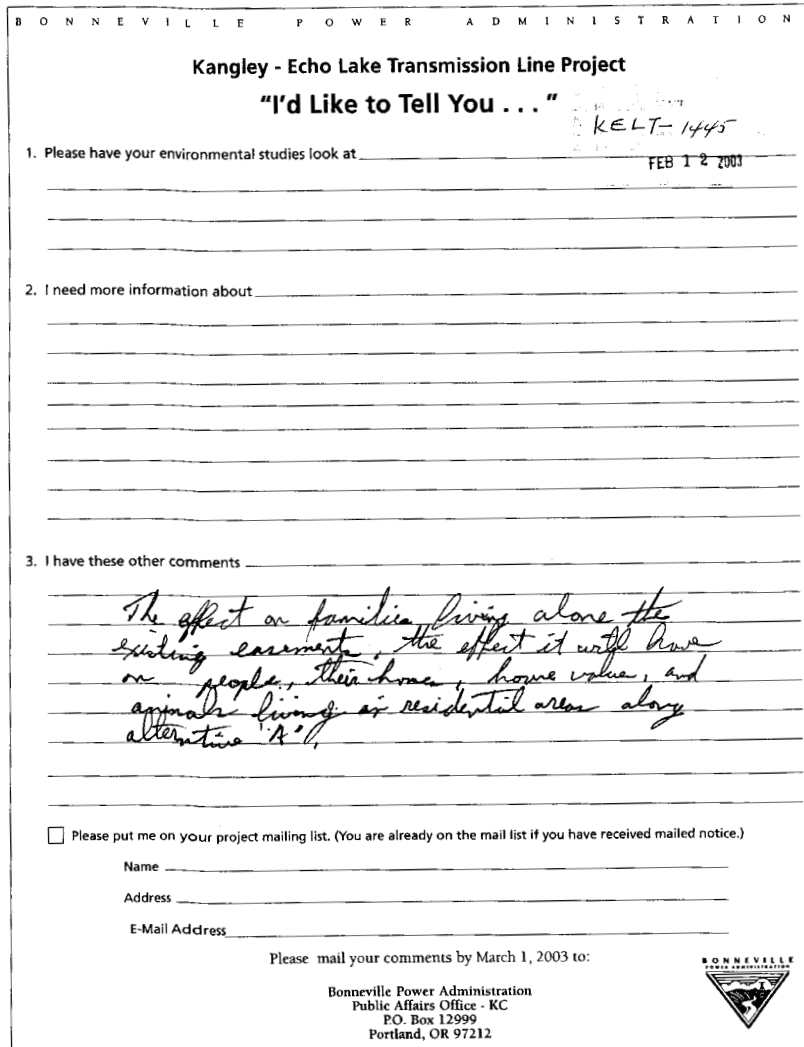 BONNEVILLE POWER ADMINISTRATION
Kangley - Echo Lake Transmission Line Project
"I'd Like to Tell You . . . "
KELT- 1445
1. Please have your environmental studies look at
FEB 1 2 2003
2. I need more information about
3. I have these other comments
The effect on families living alone the
existing easements, the effect it will have
on people, their homes, home value, and
animals living in residential areas along
alterntive "A",
Please put me on your project mailing list. (You are already on the mail list if you have received mailed notice.)
Name
Address
E-Mail Address
Please mail your comments by March 1, 2003 to:
Bonneville Power Administration
Public Affairs Office - KC
P.O. Box 12999
Portland, OR 97212
BONNEVILLE
POWER ADMINISTRATION